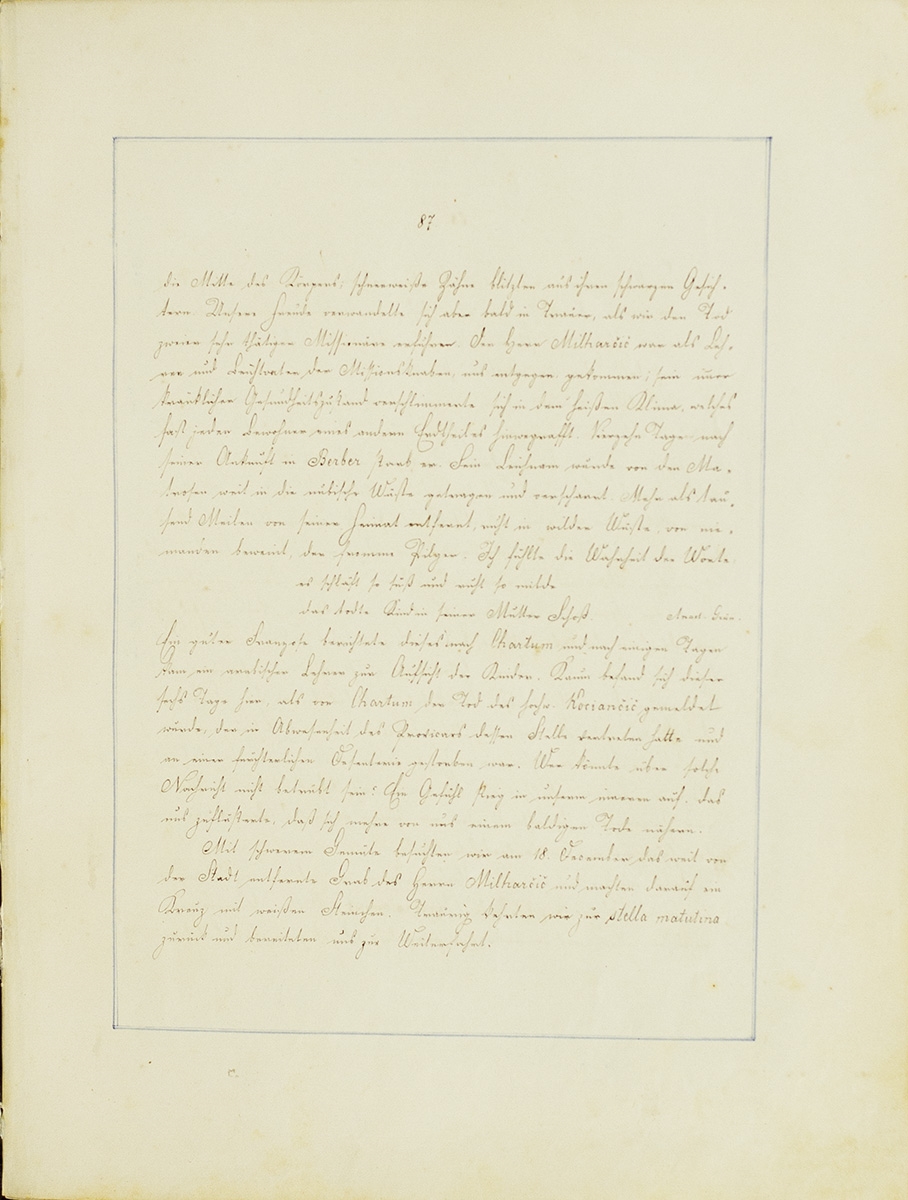 87
die Mitte des Körpers; schneeweiße Zähne blitzten aus ihren schwarzen Gesich-
tern. Unsere Freude verwandelte sich aber bald in Trauer, als wir den Tod
zweier sehr thätigen Missionäre erfuhren. Der Herr Milharčič war als Leh-
rer und Beichtvater der Missionsknaben, uns entgegen gekommen; sein
kränklicher Gesundheitszustand verschlimmerte sich in dem heißen Klima, welches
fast jeden Bewohner eines andern Erdtheiles hinwegrafft. Vierzehn Tage nach
seiner Ankunft in Berber starb er. Sein Leichnam wurde von den Ma-
trosen weit in die nubische Wüste getragen und verscharrt. Mehr als tau-
send Meilen von seiner Heimat entfernt, ruht in wilder Wüste, von nie-
manden beweint, der fromme Pilger. Ich fühlte die Wahrheit der Worte
es schläft so süß und ruht so milde
das todte Kind in seiner Mutter Schoß. Anast. Grün.
Ein guter Franzose berichtete dieses nach Chartum und nach einigen Tagen
kam ein arabischer Lehrer zur Aufsicht der Kinder. Kaum befand sich dieser
sechs Tage hier, als von Chartum der Tod des hochw. Kociančič gemeldet
wurde, der in Abwesenheit des Provicars dessen Stelle vertreten hatte und
an einer fürchterlichen Desenterie gestorben war. Wer könnte über solche
Nachricht nicht betrübt sein? Ein Gefühl stieg in unserm inneren auf, das
uns zuflüsterte, daß sich mehre von uns einem baldigen Tode nähern.
Mit schwerem Gemüte besuchten wir am 18. December das weit von
der Stadt entfernte Grab des Herrn Milharčič und machten darauf ein
Kreuz mit weißen Steinchen. Traurig kehrten wir zur stella matutina
zurück und bereiteten uns zur Weiterfahrt.